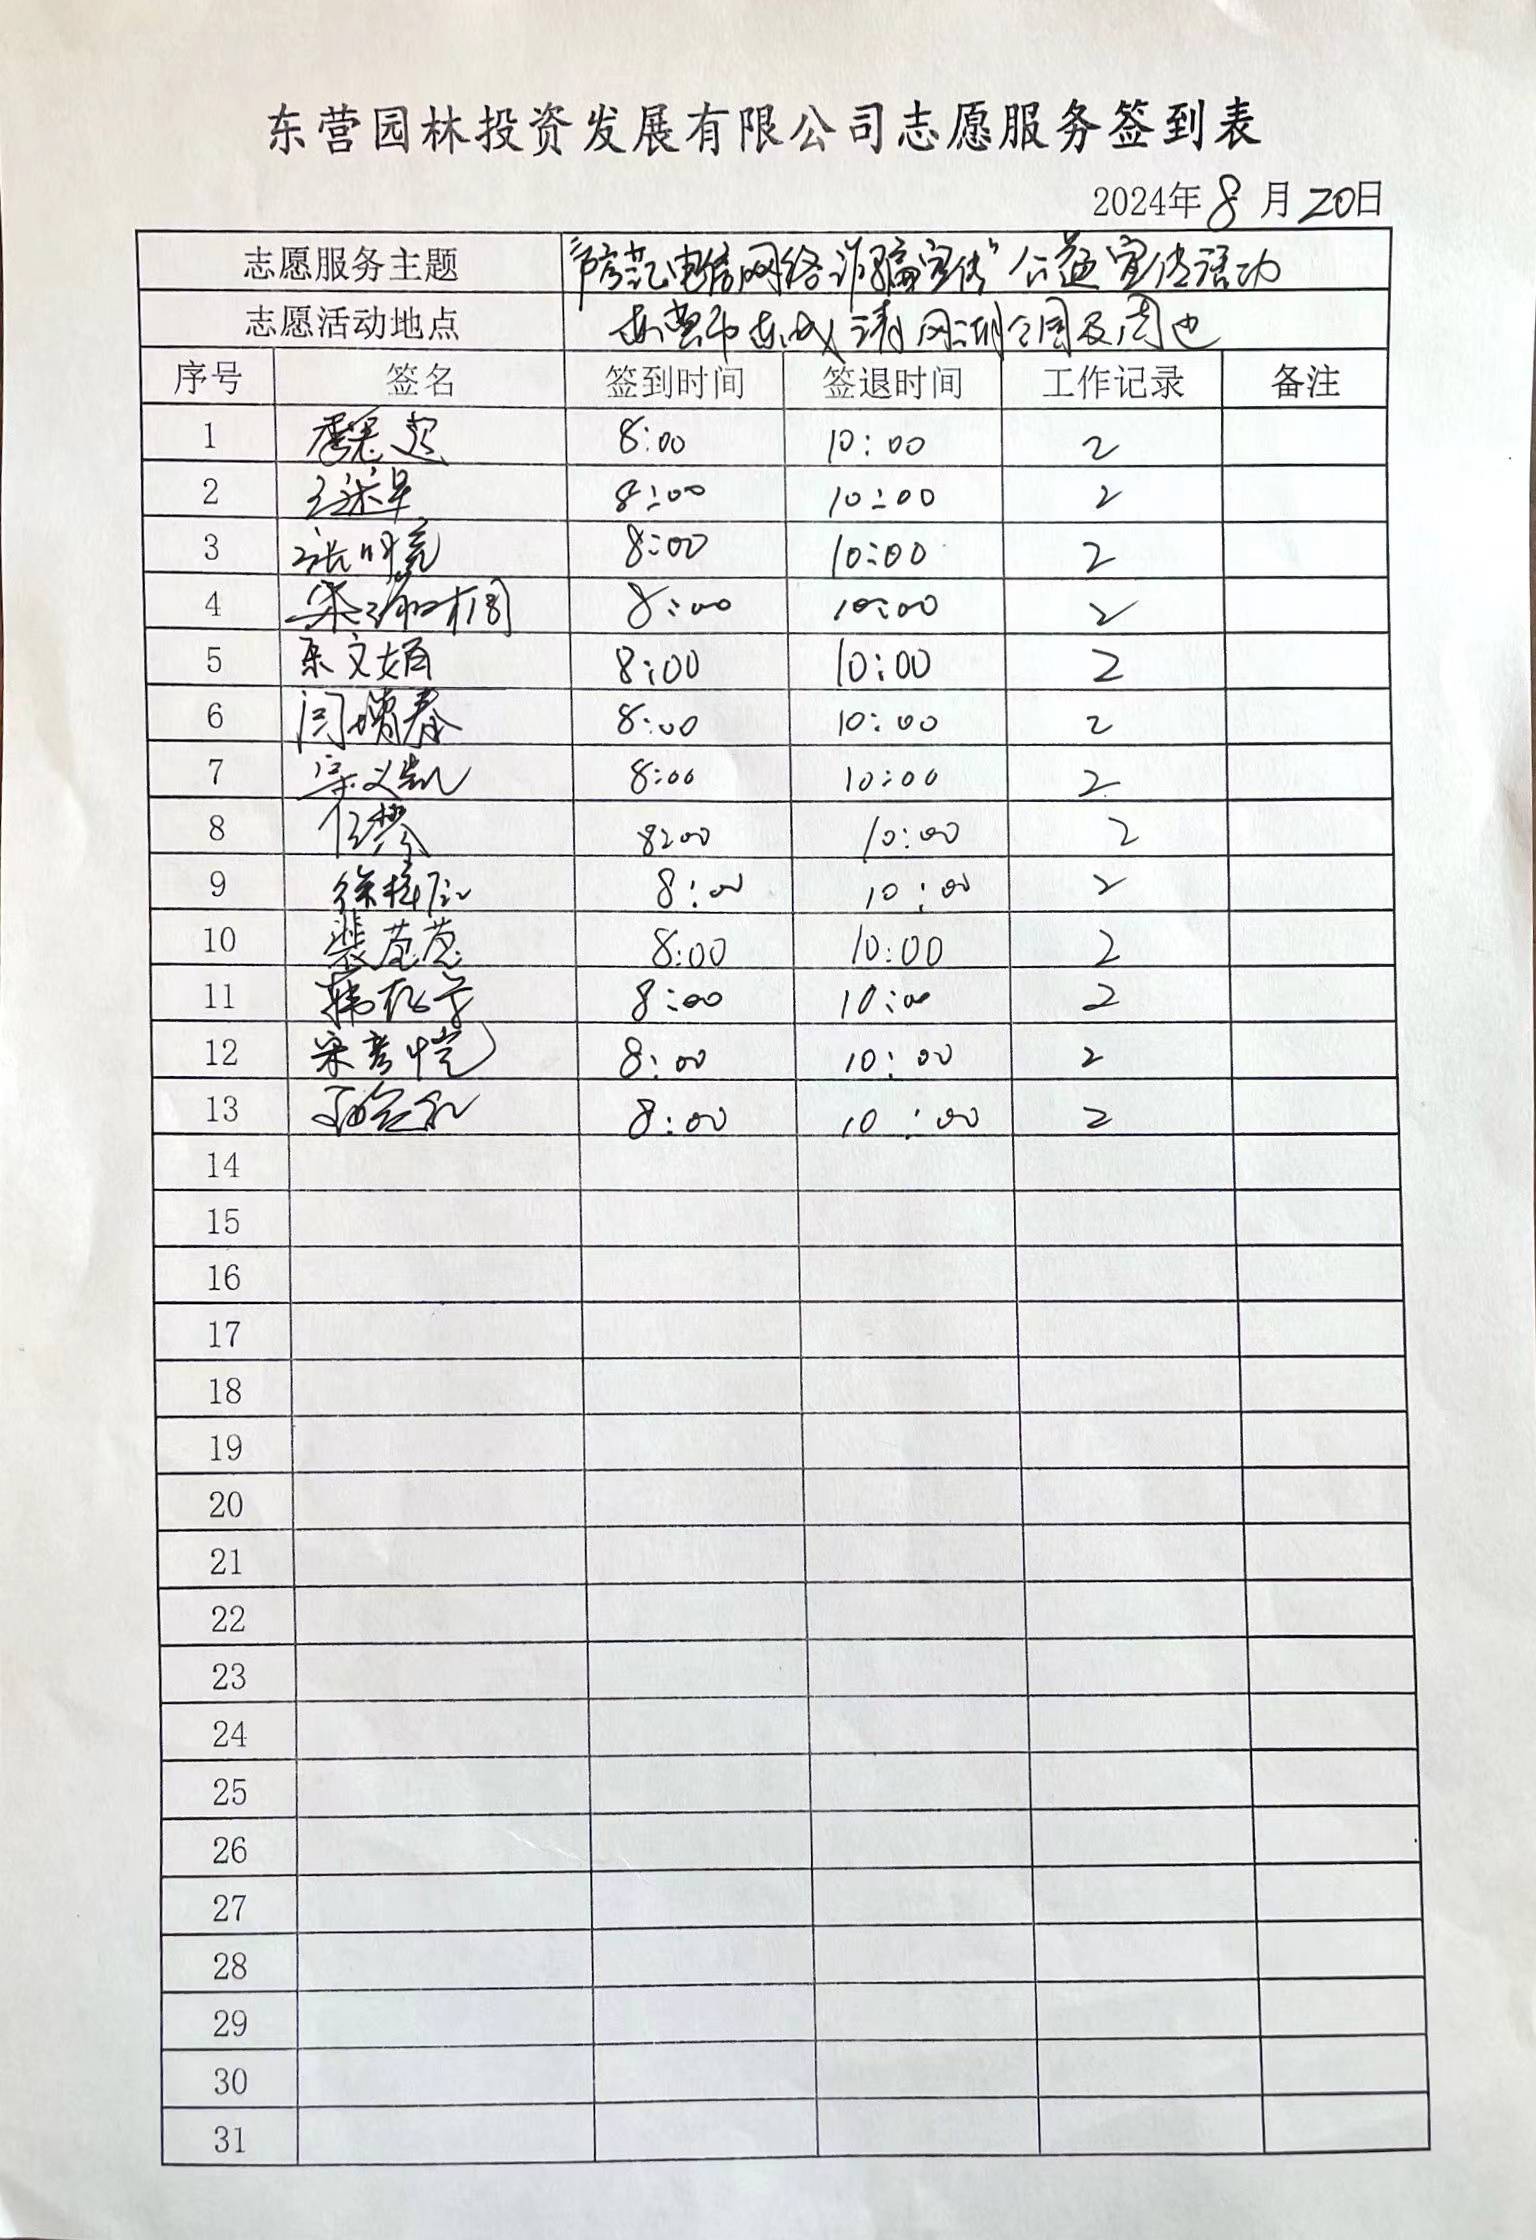 东营园林投资发展有限公司志愿服务签到表
2024年8月20日
志愿服务主题 “防范电信网络诈骗宣传”公益宣传活动
志愿活动地点 东营市东城清风湖公园及周边
序号 签名 签到时间 签退时间 工作记录 备注
1 8:00 10:00 2
2 8:00 10:00 2
3 张明亮 8:00 10:00 2
4 8:00 10:00 2
5 宋文娟 8:00 10:00 2
6 闫增春 8:00 10:00 2
7 宗义凯 8:00 10:00 2
8 任梦 8:00 10:00 2
9 8:00 10:00 2
10 裴苊苊 8:00 10:00 2
11 8:00 10:00 2
12 宋考恺 8:00 10:00 2
13 8:00 10:00 2
14
15
16
17
18
19
20
21
22
23
24
25
26
27
28
29
30
31